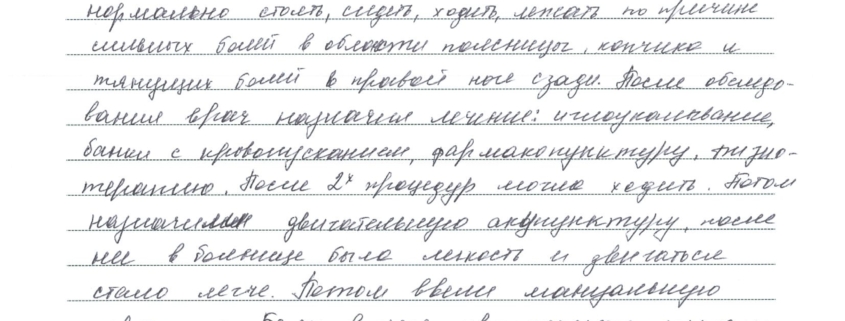 нормально стоять, сидеть, ходить, лежать по причине
сильных болей в области поясницы, копчика и
тянущих болей в правой ноге сзади. После обследо-
вания врач назначил лечение: иглоукалывание,
банки с кровопусканием, фармакопунктуру, физио-
терапию. После 2х процедур могла ходить. Потом
назначили двигательную акупунктуру, после
нее в больнице была легкость и двигаться
стало легче. Потом ввели мануальную